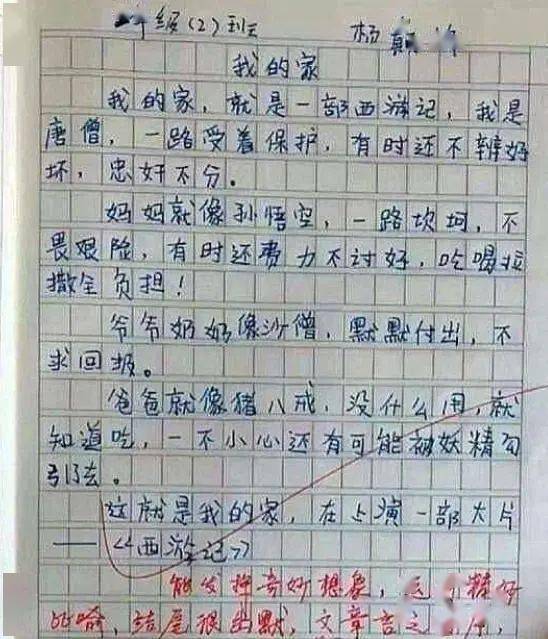 年级(2)班 杨
我的家
我的家,就是一部西游记,我是
唐僧,一路受着保护,有时还不辨好
坏,忠奸不分。
妈妈就像孙悟空,一路坎坷,不
畏艰险,有时还费力不讨好,吃喝拉
撒全负担!
爷爷奶奶像沙僧,默默付出,不
求回报。
爸爸就像猪八戒,没什么用,就
知道吃,一不小心还有可能被妖精勾
引去。
这就是我的家,在上演一部大片
——《西游记》
能发挥奇妙想象,精妙
比喻,结尾很幽默,文章言之